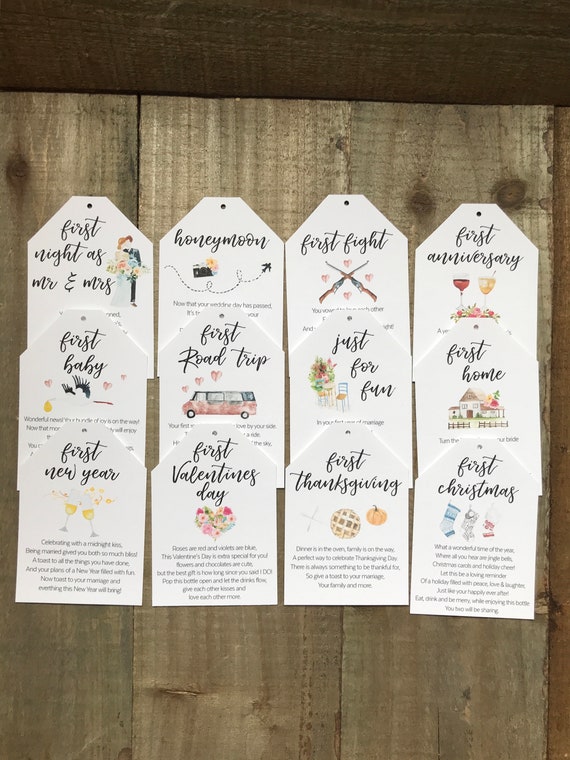 first
night as
mr & mrs
honeymoon
Now that your wedding day has passed,
first fight
first
anniversary
first
baby
Wonderful news! Your bundle of joy is on the way!
first
Road trip
just
for
fun
In your first year of marriage
first
home
first
new year
Celebrating with a midnight kiss,
Being married gives you both so much bliss!
A toast to all the things you have done,
And your plans of a New Year filled with fun.
Now toast to your marriage and
everthing this New Year will bring!
first
Valentines
day
Roses are red and violets are blue,
This Valentine's Day is extra special for you!
flowers and chocolates are cute,
but the best gift is how long since you said I DO!
Pop this bottle open and let the drinks flow,
give each other kisses and
love each other more.
first
Thanksgiving
Dinner is in the oven, family is on the way,
A perfect way to celebrate Thanksgiving Day.
There is always something to be thankful for,
So give a toast to your marriage,
Your family and more.
first
christmas
What a wonderful time of the year,
Where all you hear are jingle bells,
Christmas carols and holiday cheer!
Let this be a loving reminder
Of a holiday filled with peace, love & laughter,
Just like your happily ever after!
Eat, drink and be merry, while enjoying this bottle
You two will be sharing.